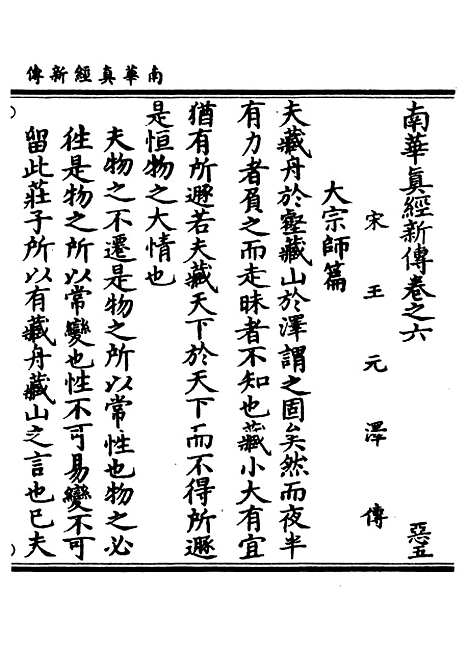 南華真經新傳
南華真經新傳卷之六 惡五
宋王元澤傳
大宗師篇
夫藏舟於壑藏山於澤謂之固矣然而夜半
有力者負之而走昧者不知也藏小大有宜
猶有所遯若夫藏天下於天下而不得所遯
是恒物之大情也
夫物之不遷是物之所以常性也物之必
徃是物之所以常變也性不可易變不可
留此莊子所以有藏舟藏山之言也巳夫